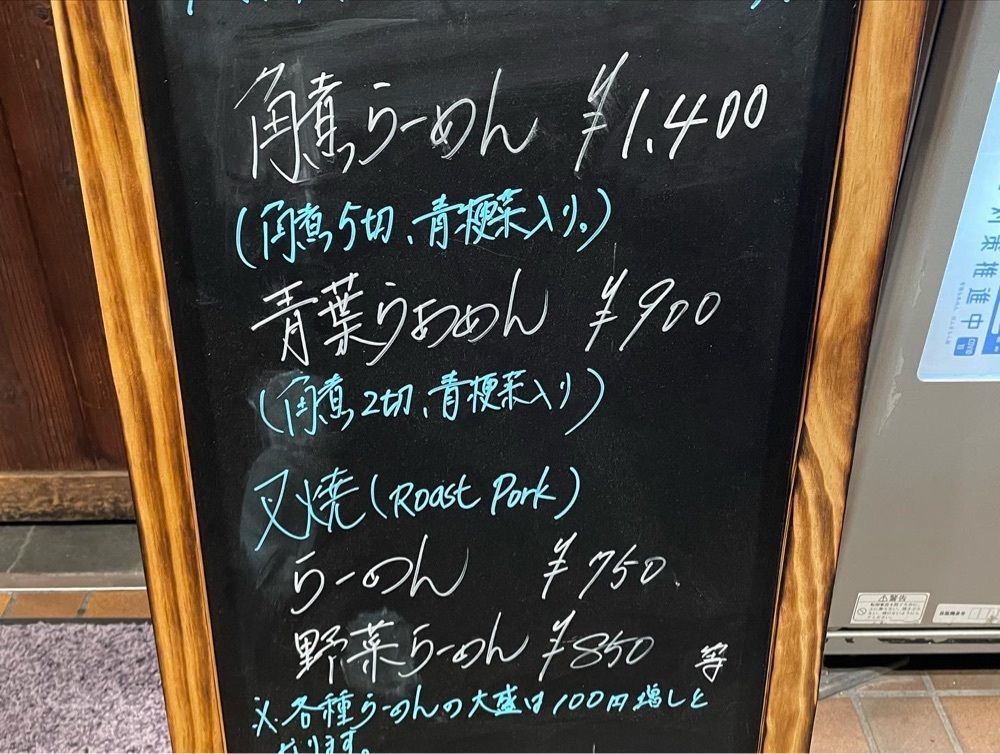 角煮らーめん ¥1.400
(角煮5切、青梗菜入り。)
青葉らあめん ¥900
(角煮2切、青梗菜入り)
叉焼(Roast Pork)
らーめん ¥750.
野菜らーめん ¥850 等
※各種らーめんの大盛は100円増しと
なります。
対策推進中
⚠警告